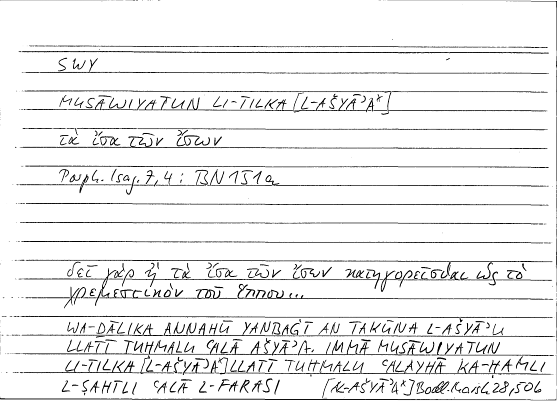 SWY
MUSĀWIYATUN LI-TILKA [L-AŠYĀʾAˣ]
τὰ ἴσα τῶν ἴσων
Porph. Isag. 7,4 : BN 151a
δεῖ γὰρ ἢ τὰ ἴσα τῶν ἴσων κατηγορεῖσθαι ὡς τὸ
χρεμεστικὸν τοῦ ἵππου...
WA-ḎĀLIKA ANNAHŪ YANBAĠĪ AN TAKŪNA L-AŠYĀʾU
LLATĪ TUḤMALU ʿALĀ AŠYĀʾA. IMMĀ MUSĀWIYATUN
LI-TILKA [L-AŠYĀʾAˣ] LLATĪ TUḤMALU ʿALAYHĀ KA-ḤAMLI
L-ṢAHĪLI ʿALĀ L-FARASI [AL-AŠYĀʾAˣ] Bodl. Marsh 28, 506